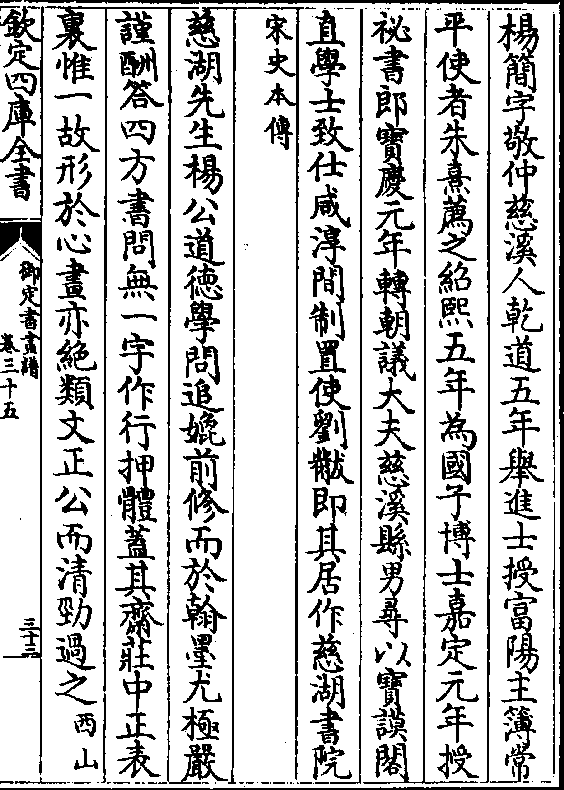 楊簡字敬仲慈溪人乾道五年舉進士授富陽主簿常
平使者朱熹薦之紹熙五年為國子博士嘉定元年授
祕書郎寶慶元年轉朝議大夫慈溪縣男尋以寶謨閣
直學士致仕咸淳間制置使劉黻即其居作慈湖書院
宋史本傳
慈湖先生楊公道徳學問追媲前修而於翰墨尤極嚴
謹酬答四方書問無一字作行押體蓋其齋莊中正表
裏惟一故形於心畫亦絶類文正公而清勁過之西山
欽定四庫全書
御定書畫譜
卷三十五
三十二